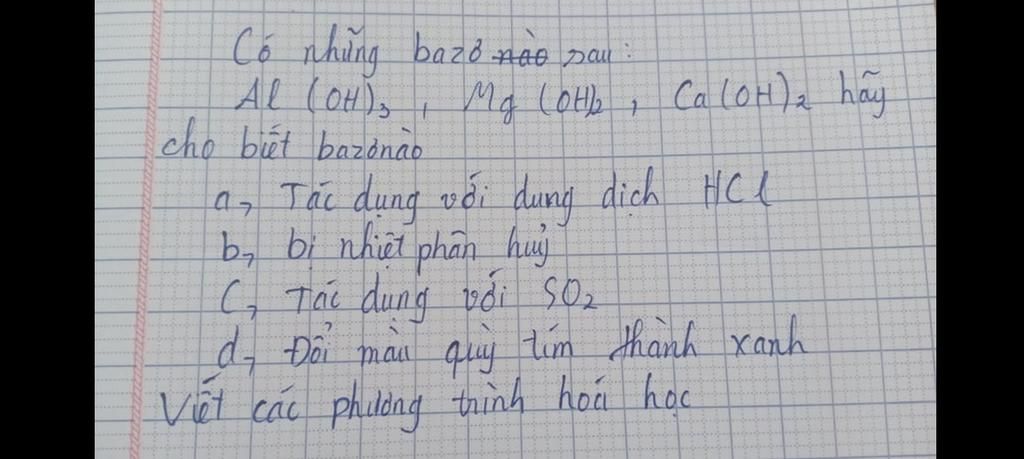 Có những bazơ nào sau:
Al(OH)₃, Mg(OH)₂, Ca(OH)₂ hãy
cho biết bazơ nào
a, Tác dụng với dung dịch HCl
b, bị nhiệt phân huỷ
c, Tác dụng với SO₂
d, Đổi màu quỳ tím thành xanh
Viết các phương trình hoá học